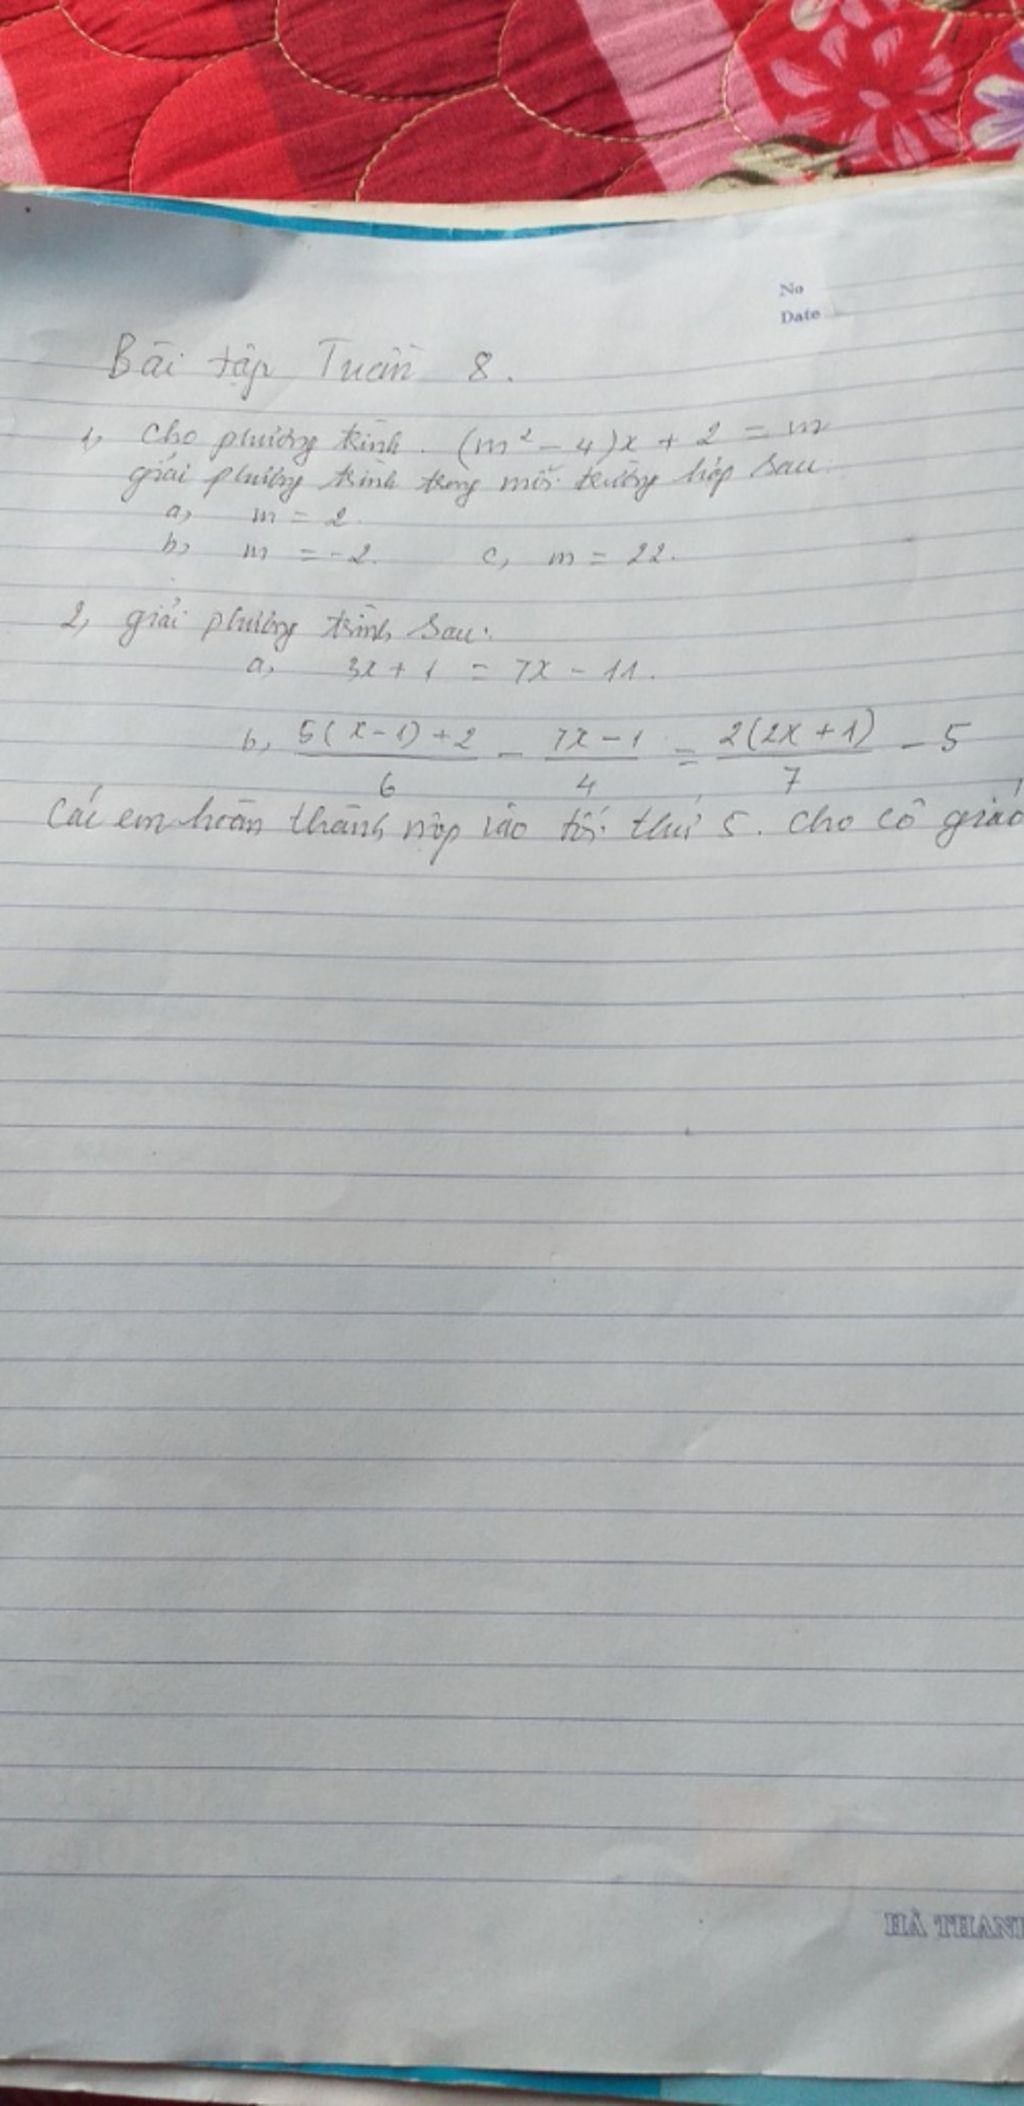 No
Date
Bài tập Tuần 8.
1, Cho phương trình. (m² - 4)x + 2 = m
giải phương trình trong mỗi trường hợp sau:
a, m = 2.
b, m = -2. c, m = 22.
2, giải phương trình sau:
a, 3x + 1 = 7x - 11.
b, (5(x-1)+2)/6 - (7x-1)/4 = (2(2x+1))/7 - 5
Các em hoàn thành nộp vào tối thứ 5. cho cô giáo
HÀ THAN